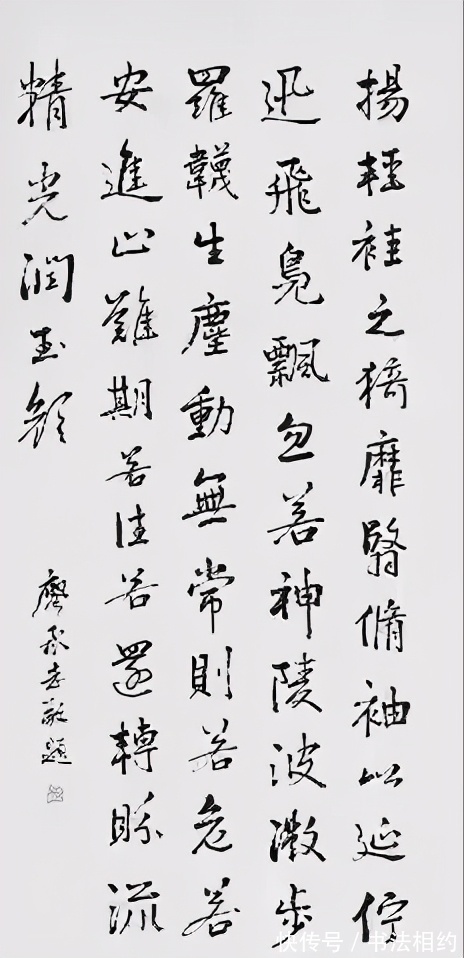 揚輕袿之猗靡翳脩袖以延佇
迅飛鳧飄忽若神陵波微步
羅韤生塵動無常則若危若
安進止難期若往若還轉眄流
精光潤玉顏
廖承志敬題
快传号 / 书法相约